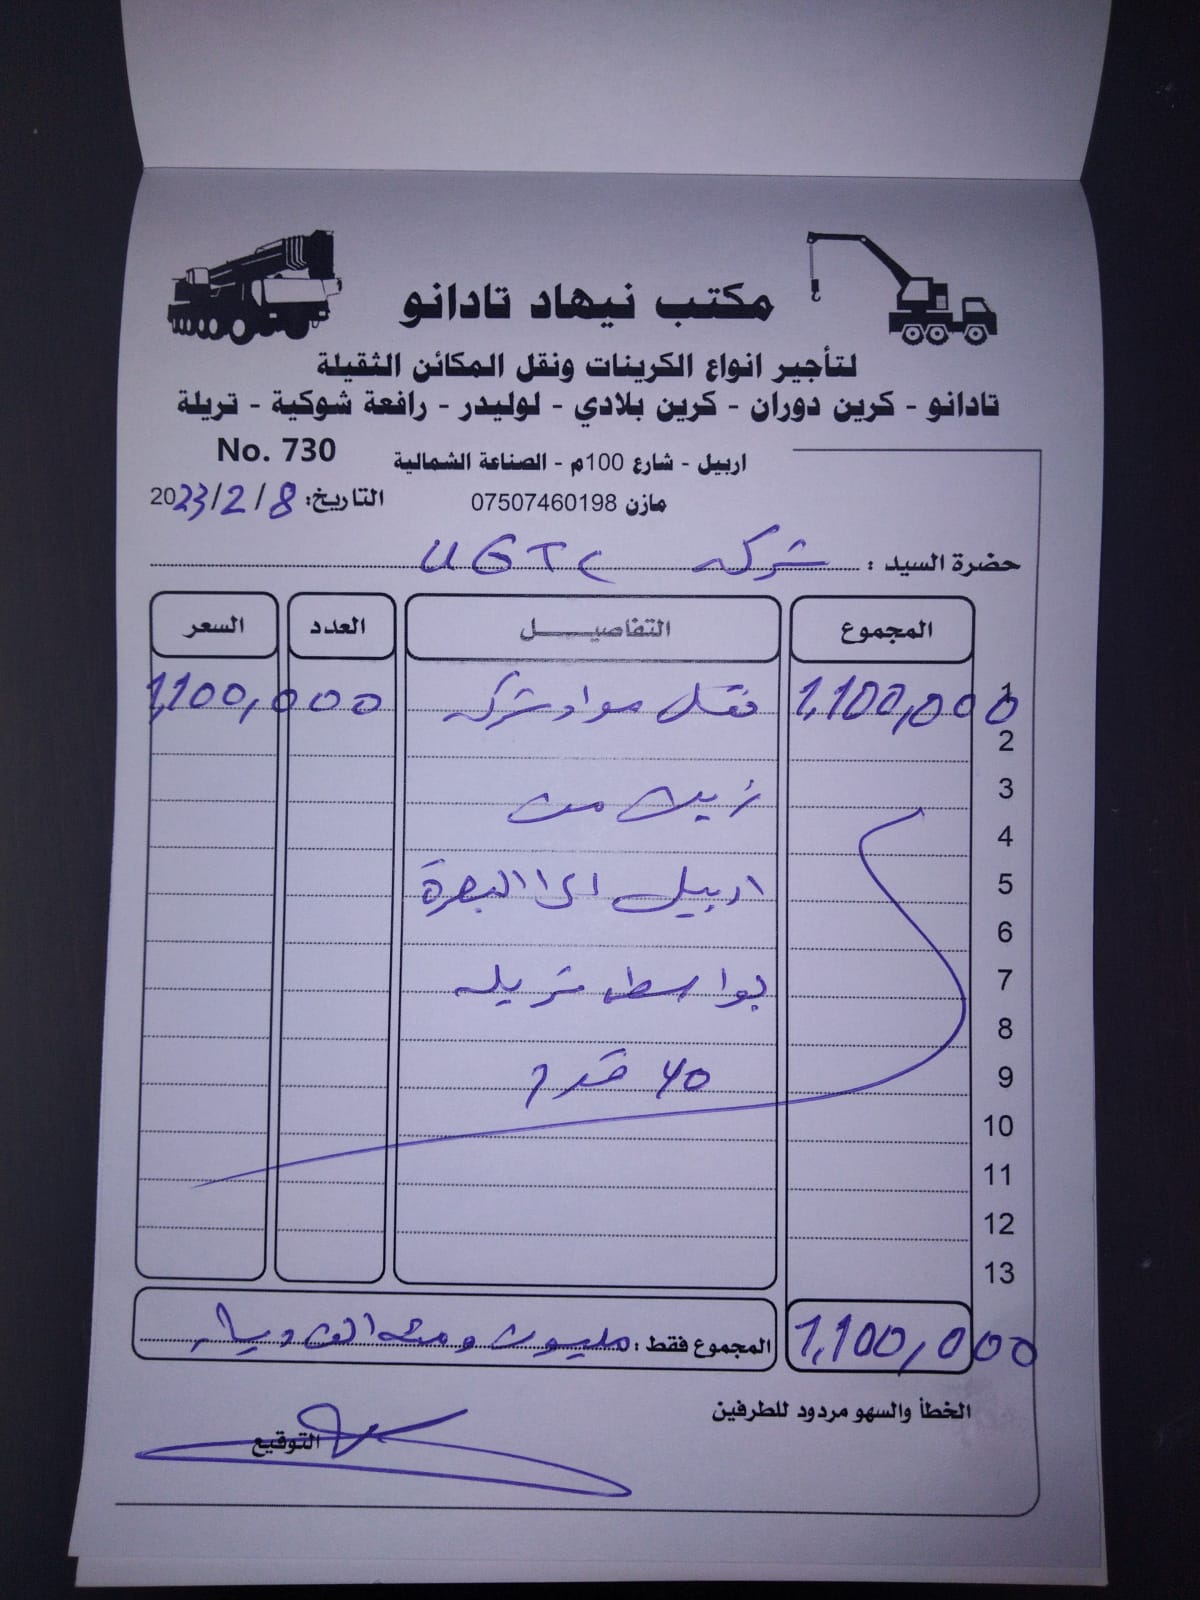 مكتب نيهاد تادانو
لتأجير انواع الكرينات ونقل المكائن الثقيلة
تادانو - كرين دوران - كرين بلادي - لوليدر - رافعة شوكية - تريلة
No. 730
اربيل - شارع 100م - الصناعة الشمالية
مازن 07507460198
التاريخ: 2023/2/8
حضرة السيد : شركه UGTC
المجموع التفاصيل العدد السعر
1 1,100,000 نقل مواد شركه 1,100,000
2
3 من
4
5 اربيل الى البصرة
6
7 بواسطه تريله
8
9 40 قدم
10
11
12
13
1,100,000 المجموع فقط : مليون ومئة الف دينار
الخطأ والسهو مردود للطرفين
التوقيع